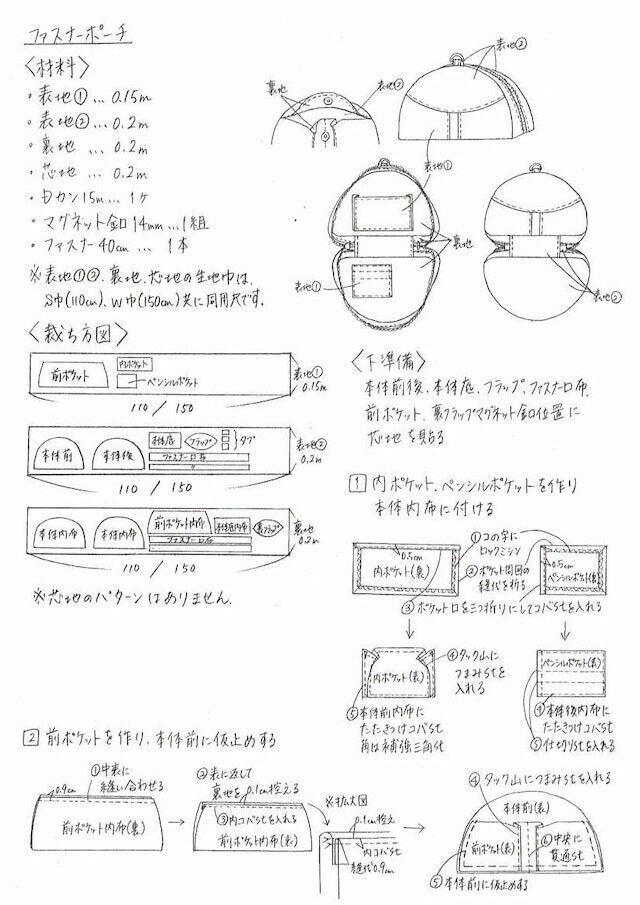 ファスナーポーチ
〈材料〉
・表地① … 0.15m
・表地② … 0.2m
・裏地 … 0.2m
・芯地 … 0.2m
・Dカン15m … 1ケ
・マグネット釦14mm …1組
・ファスナー40cm … 1本
※表地①②、裏地、芯地の生地巾は、
S巾(110cm)、W巾(150cm)共に同用尺です。
表地②
裏地
表地②
表地①
裏地
表地①
表地②
〈裁ち方図〉
前ポケット
内ポケット
ペンシルポケット
表地①
0.15m
110 / 150
本体前
本体後
本体底
フラップ
タブ
ファスナー口布
〃
表地②
0.2m
110 / 150
本体内布
本体内布
前ポケット内布
本体底内布
裏フラップ
ファスナー口布
裏地
0.2m
110 / 150
※芯地のパターンはありません。
〈下準備〉
本体前後、本体底、フラップ、ファスナー口布、
前ポケット、裏フラップマグネット釦位置に
芯地を貼る
1 内ポケット、ペンシルポケットを作り
本体内布に付ける
①コの字に
ロックミシン
0.5cm
内ポケット(裏)
②ポケット周囲の
縫代を折る
0.5cm
ペンシルポケット(裏)
③ポケット口を三つ折りにしてコバstを入れる
内ポケット(表)
④タック山に
つまみstを
入れる
⑤本体前内布に
たたきつけコバst
角は補強三角st
ペンシルポケット(表)
④本体後内布に
たたきつけコバst
⑤仕切りstを入れる
2 前ポケットを作り、本体前に仮止めする
0.9cm
①中表に
縫い合わせる
前ポケット内布(裏)
②表に返して
裏地を0.1cm控える
③内コバstを入れる
前ポケット内布(表)
※拡大図
0.1cm控え
内コバst
縫代0.9cm
④タック山につまみstを入れる
本体前(表)
前ポケット(表)
⑥中央に
貫通st
⑤本体前に仮止めする